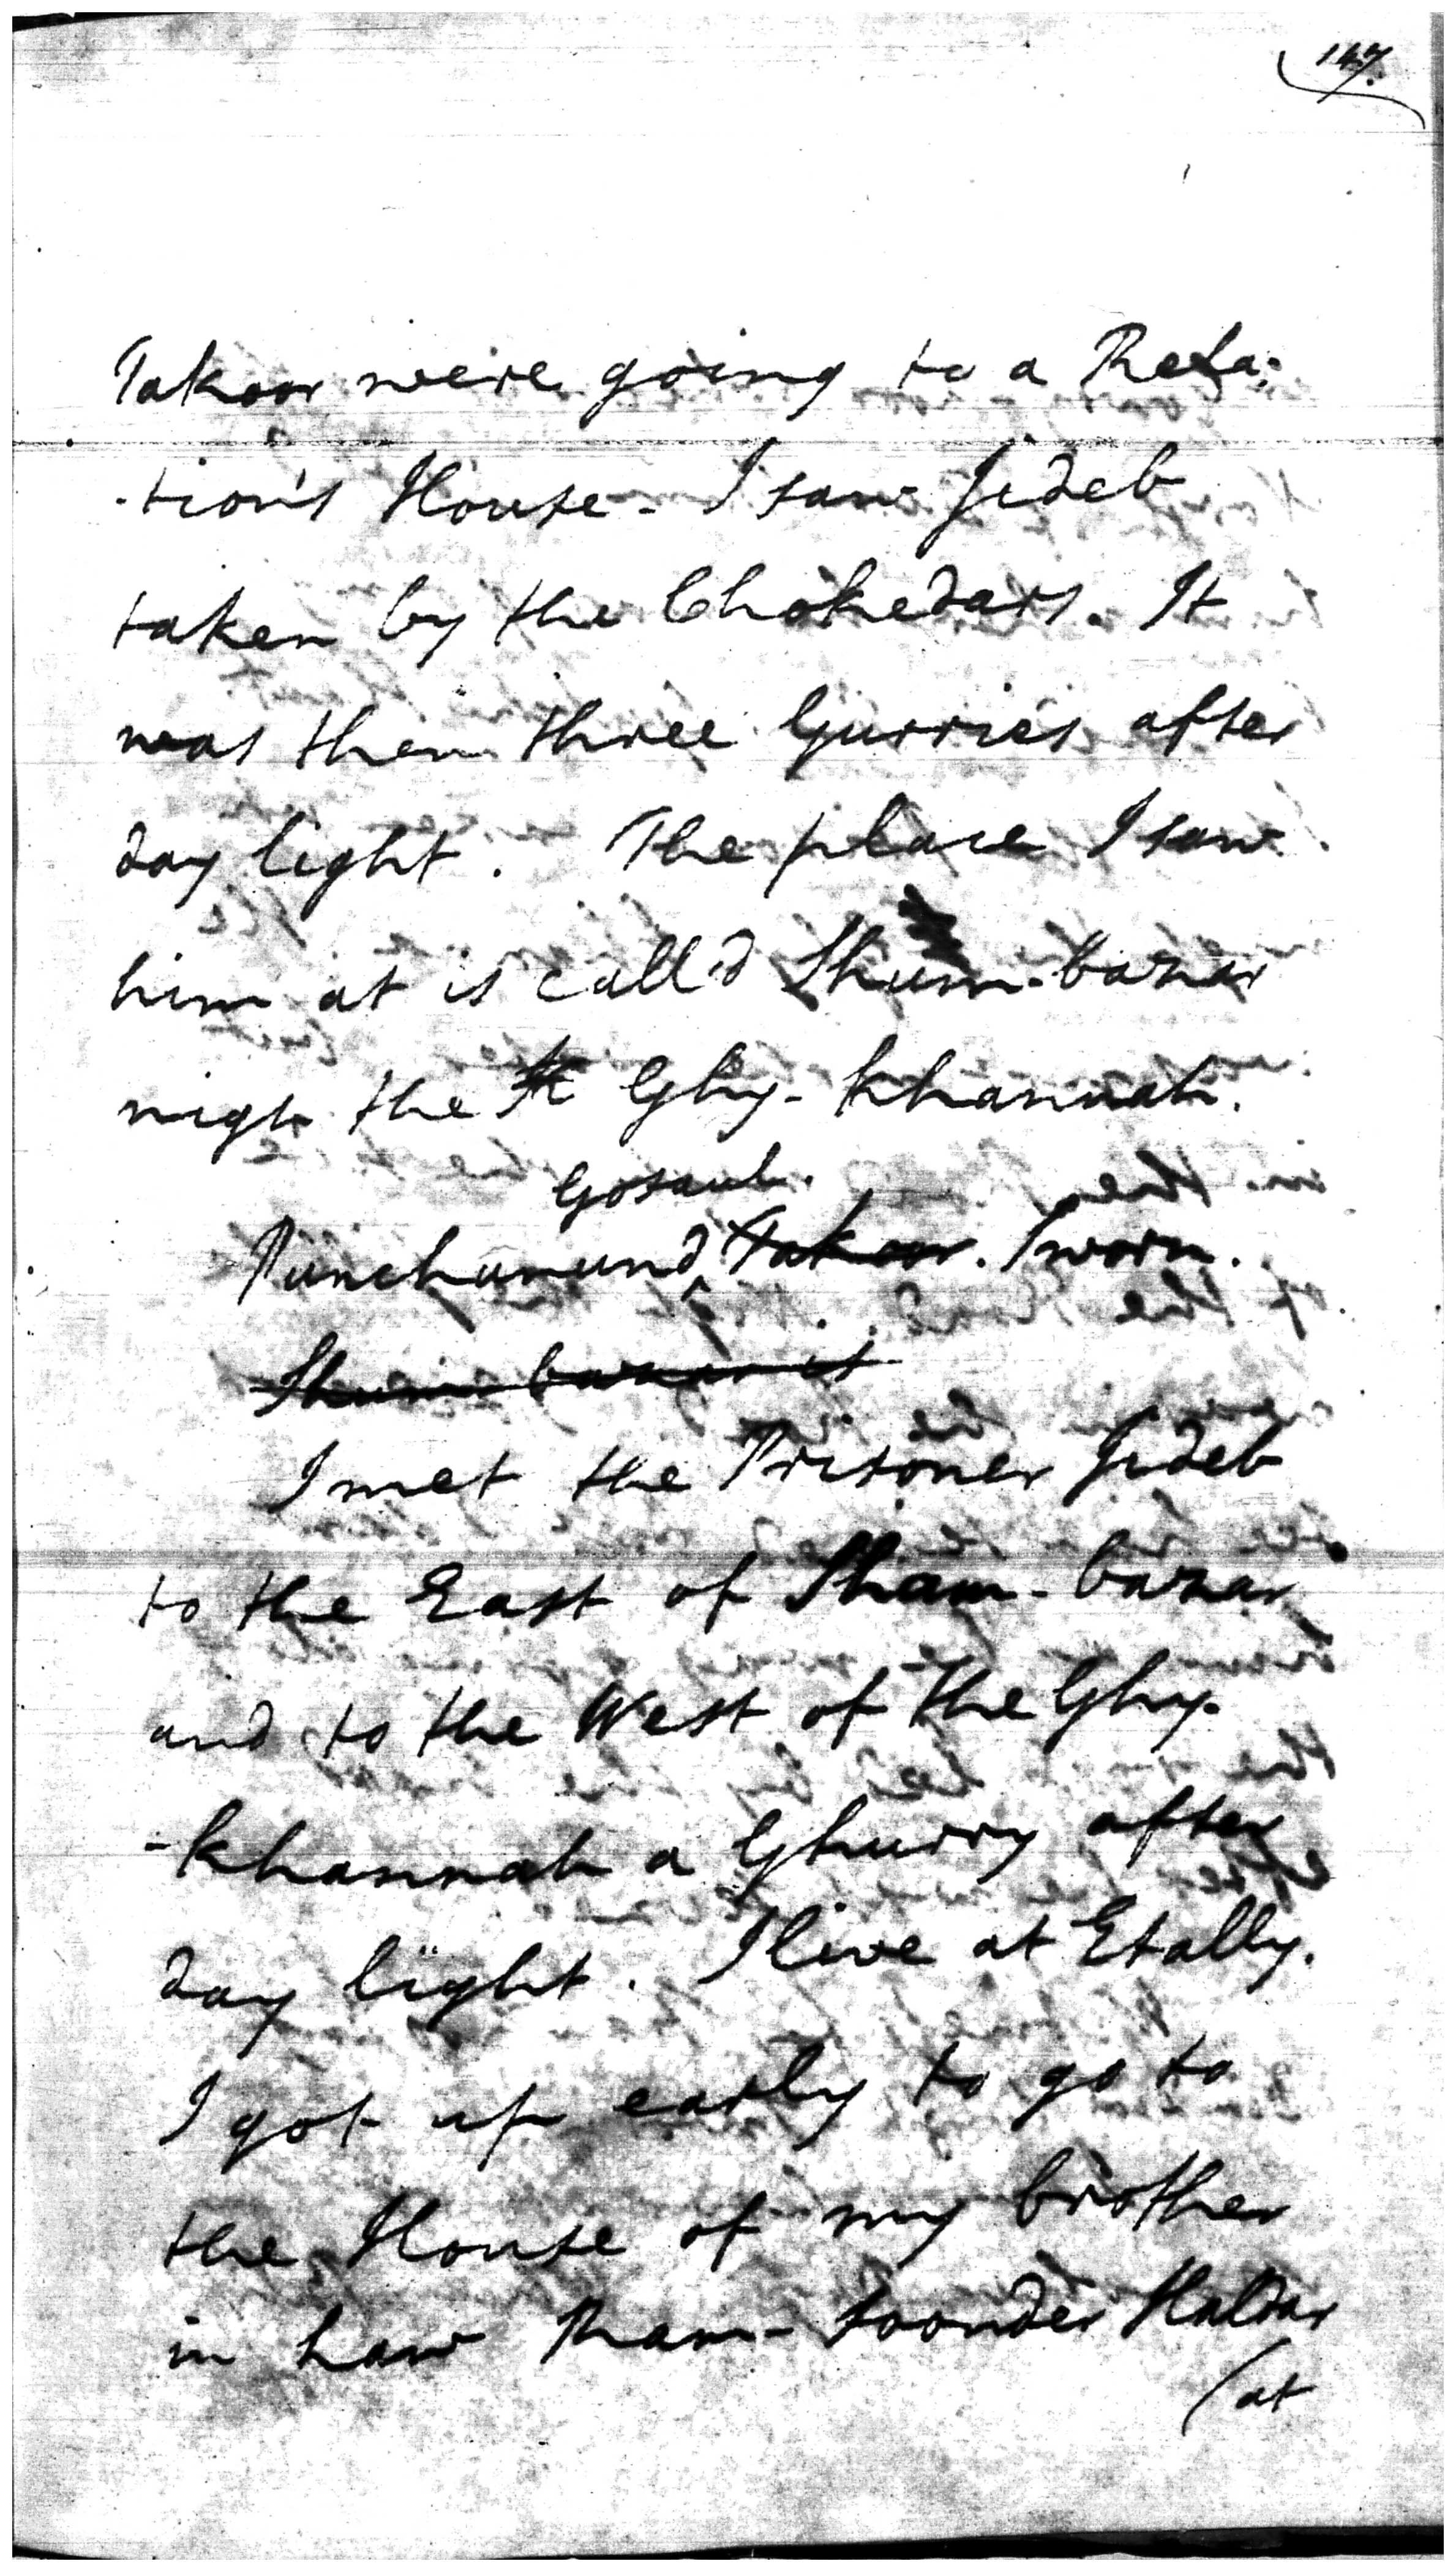 147.
Takoor were going to a Rela:
-tion's House - I saw Jideb
taken by the Chokedars. It
was then three Gurries after
day light. The place I saw
him at is call'd Shum-bazar
nigh the Ghy-khannah.
Gosaul.
Punchanund Takoor. Sworn.
Shum-bazar is
I met the Prisoner Jideb
to the East of Sham-bazar
and to the West of the Ghy-
-khannah a Ghurry after
day light. I live at Etally.
I got up early to go to
the House of my brother
in Law Ram-Soonder Haldar
(at